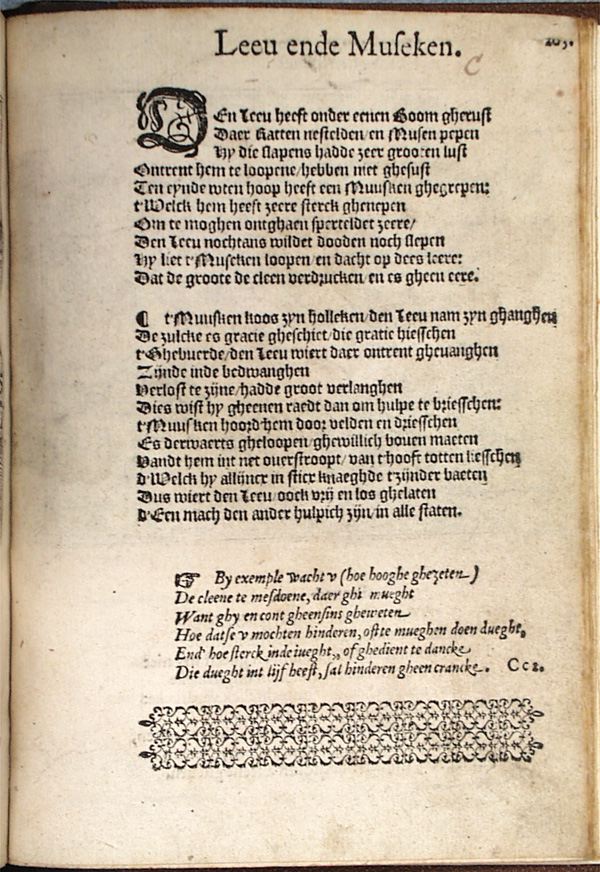 Leeu ende Museken.
203.
C
DEn Leeu heeft onder eenen Boom gherust
Daer Katten nestelden/ en Musen pepen
Hy die slapens hadde zeer grooten lust
Ontrent hem te loopene/ hebben niet ghesust
Ten eynde wten hoop heeft een Muusken ghegrepen:
t'Welck hem heeft zeere sterck ghenepen
Om te moghen ontghaen sperteldet zeere/
Den Leeu nochtans wildet dooden noch slepen
Hy liet t'Museken loopen/ en dacht op dees leere:
Dat de groote de cleen verdrucken/ en es gheen eere.
¶ t'Muusken koos zyn holleken/ den Leeu nam zyn ghanghen
De zulcke es gracie gheschiet/ die gratie hiesschen
t'Ghebuerde/ den Leeu wiert daer ontrent ghevanghen
Zijnde inde bedwanghen
Verlost te zijne/ hadde groot verlanghen
Dies wist hy gheenen raedt dan om hulpe te briesschen:
t'Muusken hoord'hem door velden en driesschen
Es derwaerts gheloopen/ ghewillich bouen maeten
Vandt hem int net ouerstroopt/ van t'hooft totten liesschen
d'Welck hy allijncx in sticx knaeghde t'zijnder baeten
Dus wiert den Leeu/ oock vrij en los ghelaten
d'Een mach den ander hulpich zijn/ in alle staten.
☞ By exemple wacht v (hoe hooghe ghezeten)
De cleene te mesdoene, daer ghi mueght
Want ghy en cont gheensins gheweten
Hoe datse v mochten hinderen, oft te mueghen doen dueght,
End' hoe sterck inde iueght,, of ghedient te dancke
Die dueght int lijf heeft, sal hinderen gheen crancke.
Cc2.